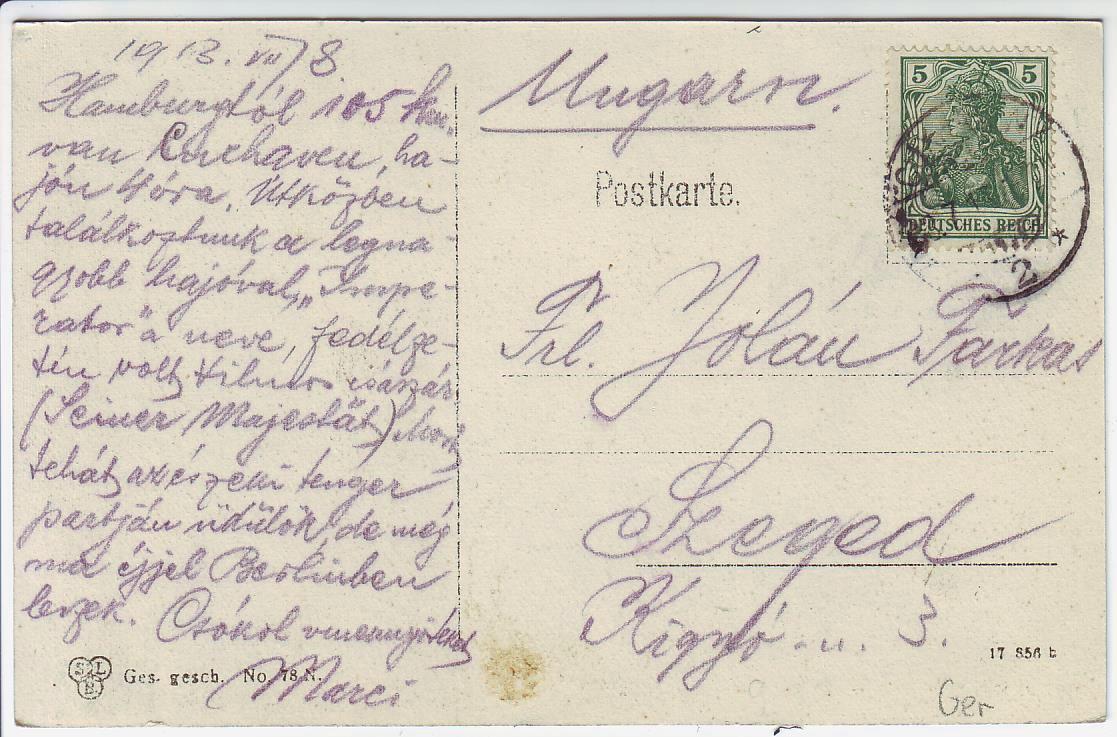 1913. VII/8.
Hamburgtól 105 km.
van Cuxhaven, ha-
jón 4 óra. Útközben
találkoztunk a legna-
gyobb hajóval, „Impe-
rator" a neve, fedélze-
tén volt Vilmos császár
(Seiner Majestät) Most
tehát az északi tenger
partján üdülök, de még
ma éjjel Berlinben
leszek. Csókol
Marci
Ges. gesch. No. 78 N.
S L B
Ungarn.
Postkarte.
5 5
DEUTSCHES REICH
Frl. Jolán Farkas
Szeged
Kigyó-u. 3.
17 856 b
Ger